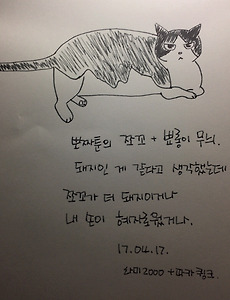 뽀짜툰의 쪼꼬 + 뽀롱이 무늬.
돼지인 게 같다고 생각했는데
쪼꼬가 더 돼지이거나
내 손이 혜자로웠거나.
17.04.17.
라미2000 + 파카 큉크.